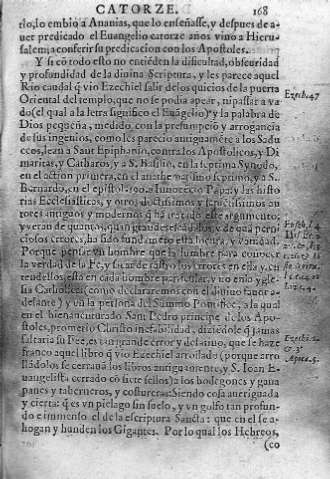 CATORZE. 168
rlo, lo embio a Ananias, que lo enseñasse, y despues de a-
uer predicado el Euangelio catorze años vino a Hieru-
salem; a conferir su predicacion con los Apostoles.
Y si cõ todo esto no entiẽden la dificultad, obscuridad
y profundidad de la diuina Scriptura, y les parece aquel
Rio caudal q̃ vio Ezechiel salir de los quicios de la puerta
Oriental del templo, que no se podia apear, ni passar a va
do (el qual a la letra significo el Euãgelio) y la palabra de
Dios pequeña, medido con la presumpciõ y arrogancia
de sus ingenios, como les parecio antiguamẽte a los Sadu
ceos, lean a Sant Epiphanio, contra los Apostolicos, y Di
maritas, y Catharos y a S. Basilio, en la septima Synodo,
en el action primera, en el anathema septimo, y a S.
Bernardo, en el epistola a Innocencio Papa: y las his
torias Ecclesiasticas, y otros doctissimos
autores antiguos y modernos q̃ hã tratado este argumento:
y veran de quantos, quan grandes y de que perni
ciosos errores, ha sido fundamẽto esta locura, y vanidad.
Porque pensar vn hombre que
la verdad de la Fe, y los errores en ella, y en
esta en cada hombre particular, y no en la Ygle
sia Catholica (como declararemos con el diuino fauor a-
delante) y en la persona del Summo Pontifice, a la qual
en el bienauenturado Sant Pedro principe de los Apo-
stoles, prometio Christo inefabilidad, diziẽdole q̃ jamas
faltaria su Fee, es tan grande error y desatino, que se haze
franco aquel libro q̃ vio Ezechiel arrollado (porque arro
llãdolos se cerrauã los libros antiguamente, y S. Ioan E
uangelista cerrado cõ siete sellos) a los bodegones y gana
panes y taberneros, y costureras: Siendo cosa aueriguada
y cierta: q̃ es vn pielago sin suelo, y vn golfo tan profun-
do e immenso el de la escriptura Sancta: que en el se a-
hogan y hunden los Gigantes. Por lo qual los Hebreos,
(co
Ezech.47
Ezech.2.
& 3.
Apoca.5.